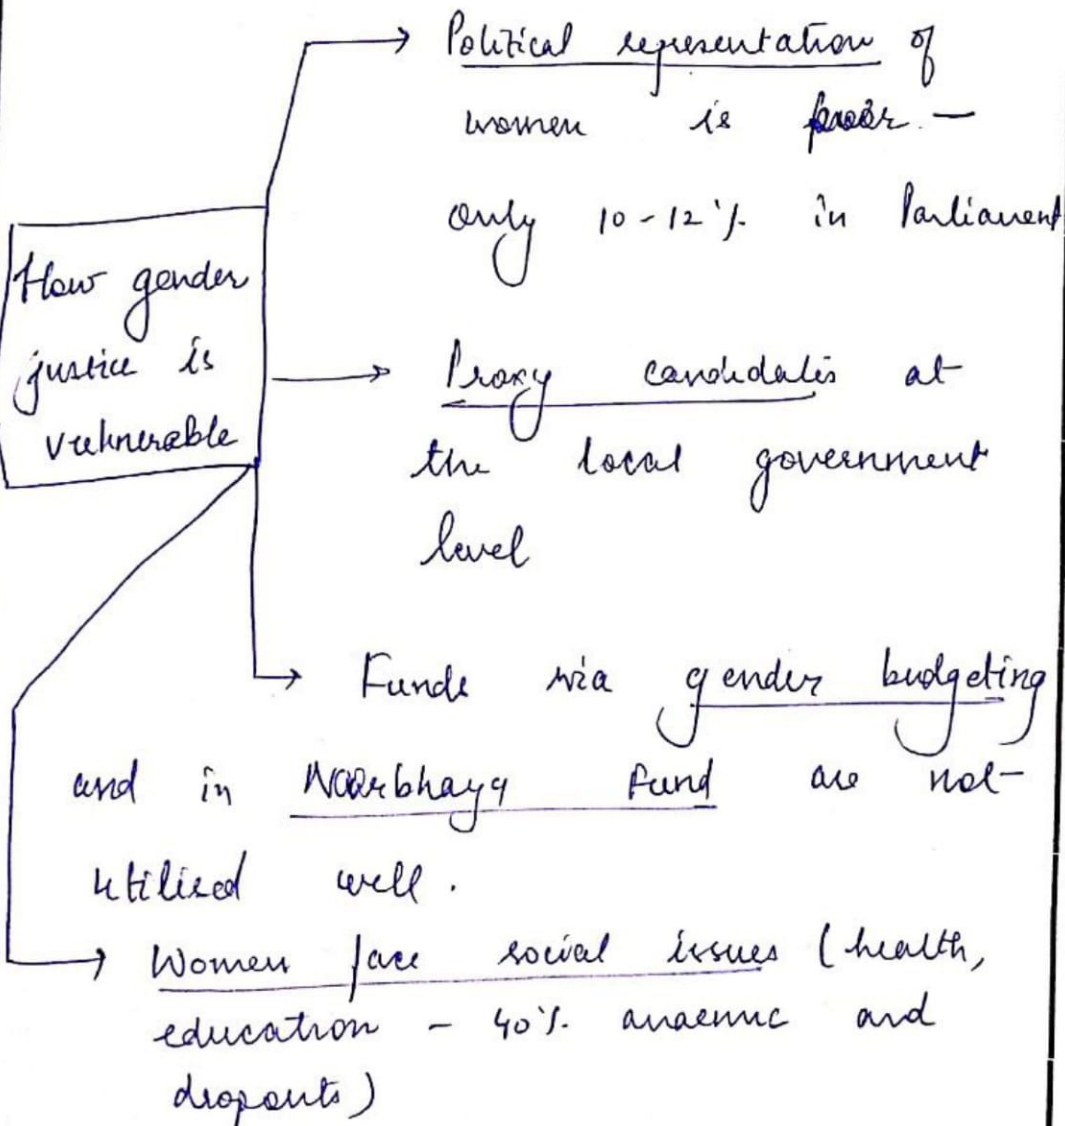 How gender
justice is
vulnerable
Political representation of
women is poor -
only 10-12% in Parliament
Proxy candidates at
the local government
level
Funds via gender budgeting
and in Nirbhaya Fund are not
utilised well.
Women face social issues (health,
education - 40% anaemic and
dropouts)